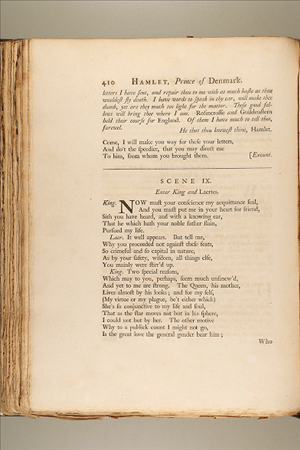 410 HAMLET, Prince of Denmark.
letters I have sent, and repair thou to me with as much haste as thou
wouldest fly death. I have words to speak in thy ear, will make thee
dumb, yet are they much too light for the matter. These good fel-
lows will bring thee where I am. Rosincrosse and Guildenstern
hold their course for England. Of them I have much to tell thee,
farewel.
He that thou knowest thine, Hamlet.
Come, I will make you way for these your letters,
And do't the speedier, that you may direct me
To him, from whom you brought them. [Exeunt.
SCENE IX.
Enter King and Laertes.
King. NOW must your conscience my acquittance seal,
And you must put me in your heart for friend,
Sith you have heard, and with a knowing ear,
That he which hath your noble father slain,
Pursued my life.
Laer. It well appears. But tell me,
Why you proceeded not against these feats,
So crimeful and so capital in nature,
As by your safety, wisdom, all things else,
You mainly were stirr'd up.
King. Two special reasons,
Which may to you, perhaps, seem much unsinew'd,
And yet to me are strong. The Queen, his mother,
Lives almost by his looks; and for my self,
(My virtue or my plague, be't either which)
She's so conjunctive to my life and soul,
That as the star moves not but in his sphere,
I could not but by her. The other motive
Why to a publick count I might not go,
Is the great love the general gender bear him;
Who